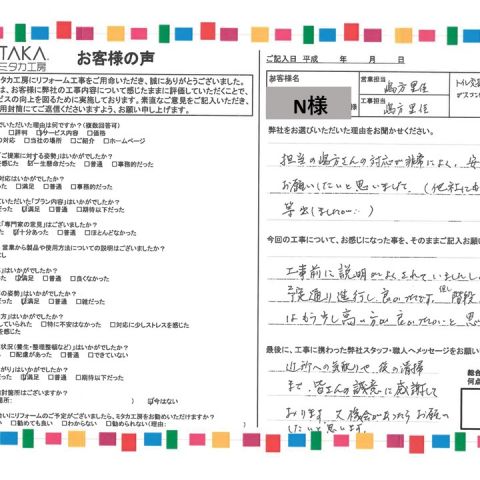 TAKA.
ミタカ工房
お客様の声
タカ工房にリフォーム工事をご用命いただき、誠にありがとうございました。
は、お客様に弊社の工事内容について感じたままに評価していただくことで、
ビスの向上を図るために実施しております。素直なご意見をご記入いただき、
用封筒にてご返信くださいますよう、お願い申し上げます。
いただいた理由は何ですか?(複数回答可)
□評判 □サービス内容 □価格
応 □当社の場所 □ご紹介 □ホームページ
「ご提案に対する姿勢」はいかがでしたか?
を感じた 一生懸命だった □普通 □事務的だった
対応はいかがでしたか?
った 満足 □普通 □事務的だった
ていただいた「プラン内容」はいかがでしたか?
った 満足 □普通 □期待以下だった
「専門家の意見」はございましたか?
た 十分あった □普通 □ほとんどなかった
営業から製品や使用方法についての説明はございましたか?
」はいかがでしたか?
った 満足 □普通 □良くなかった
の姿勢」はいかがでしたか?
った 満足 □普通 □雑だった
方」はいかがでしたか?
していられた □特に不安はなかった □対応に少しストレスを感じた
状況(養生・整理整頓など)はいかがでしたか?
□配慮があった □普通 □できていない
がり」はいかがでしたか?
った 満足 □普通 □期待以下だった
対箇所はございますか?
今はない
いにリフォームのご予定がございましたら、ミタカ工房をお勧めいただけますか?
い □勧めても良い □わからない □勧められない(理由: )
ご記入日 平成 年 月 日
お客様名
N様
営業担当
工事担当
トイレ交
弊社をお選びいただいた理由をお聞かせください。
担当の湯方さんの対応が非常によく、安
お願いしたいと思いまして。(他社にも
今回の工事について、お感じになった事を、そのままご記入お願い
工事前に説明がよくされていました
はもう少し高い方が良かったかと思
最後に、工事に携わった弊社スタッフ・職人へメッセージをお願い
近所への気取りや、後の清掃
まで、皆さんの誠意に感謝して
おります。又機会があったらお願い
したいと思います。
総合
何点